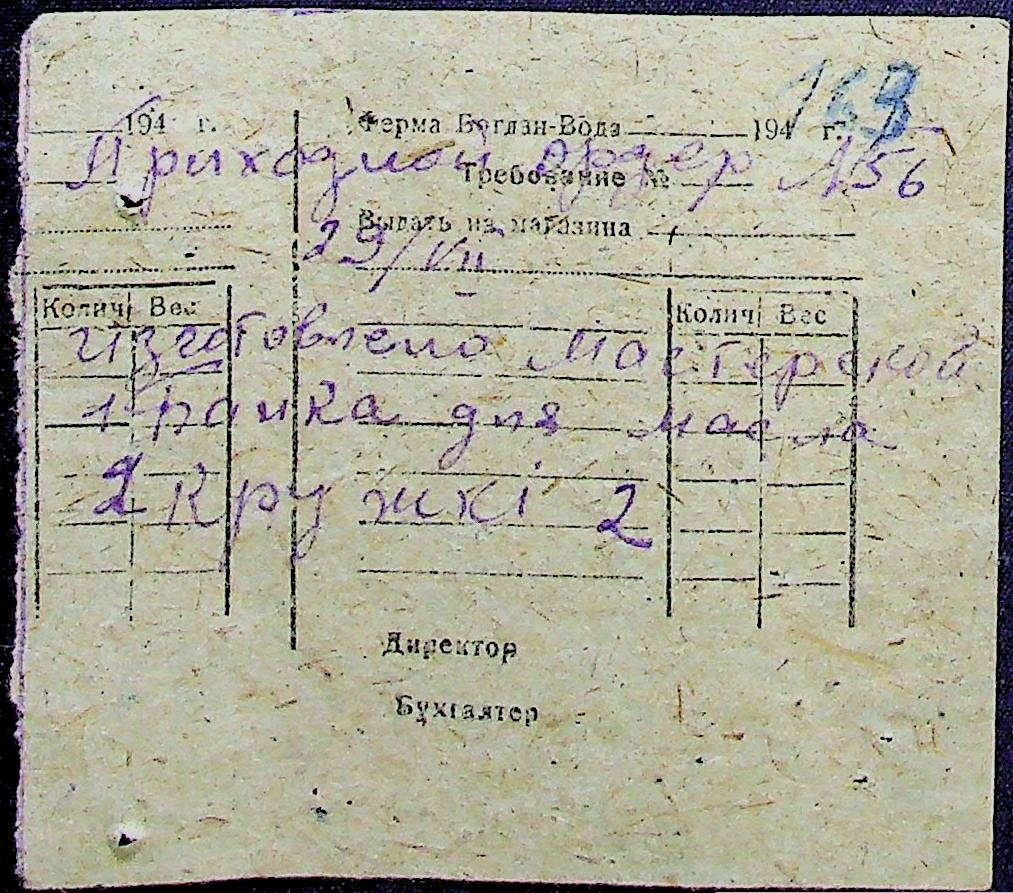 163
194 г. Ферма Богдан-Вода 194 г.
Приходной Ордер №56
Требование №
Выдать из магазина
29/VII
Колич Вес Колич Вес
изготовлено Мастерской
1 рамка для масла
2 Кружкі 2
Директор
Бухгалтер